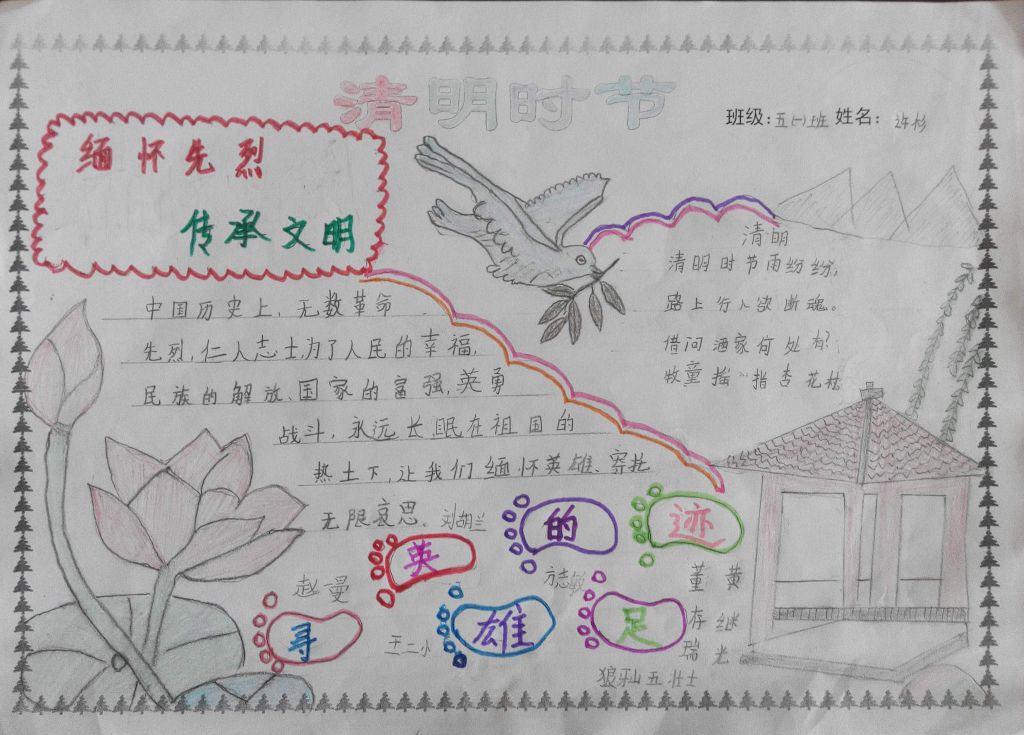 清明时节
班级:五(一)班 姓名: 许杉
缅怀先烈
传承文明
中国历史上,无数革命
先烈,仁人志士,为了人民的幸福,
民族的解放、国家的富强,英勇
战斗,永远长眠在祖国的
热土下,让我们缅怀英雄、寄托
无限哀思。
清明
清明时节雨纷纷,
路上行人欲断魂。
借问酒家何处有?
牧童摇指杏花村
寻英雄的足迹
刘胡兰
赵曼
王二小
方志敏
狼牙山五壮士
董存瑞
黄继光